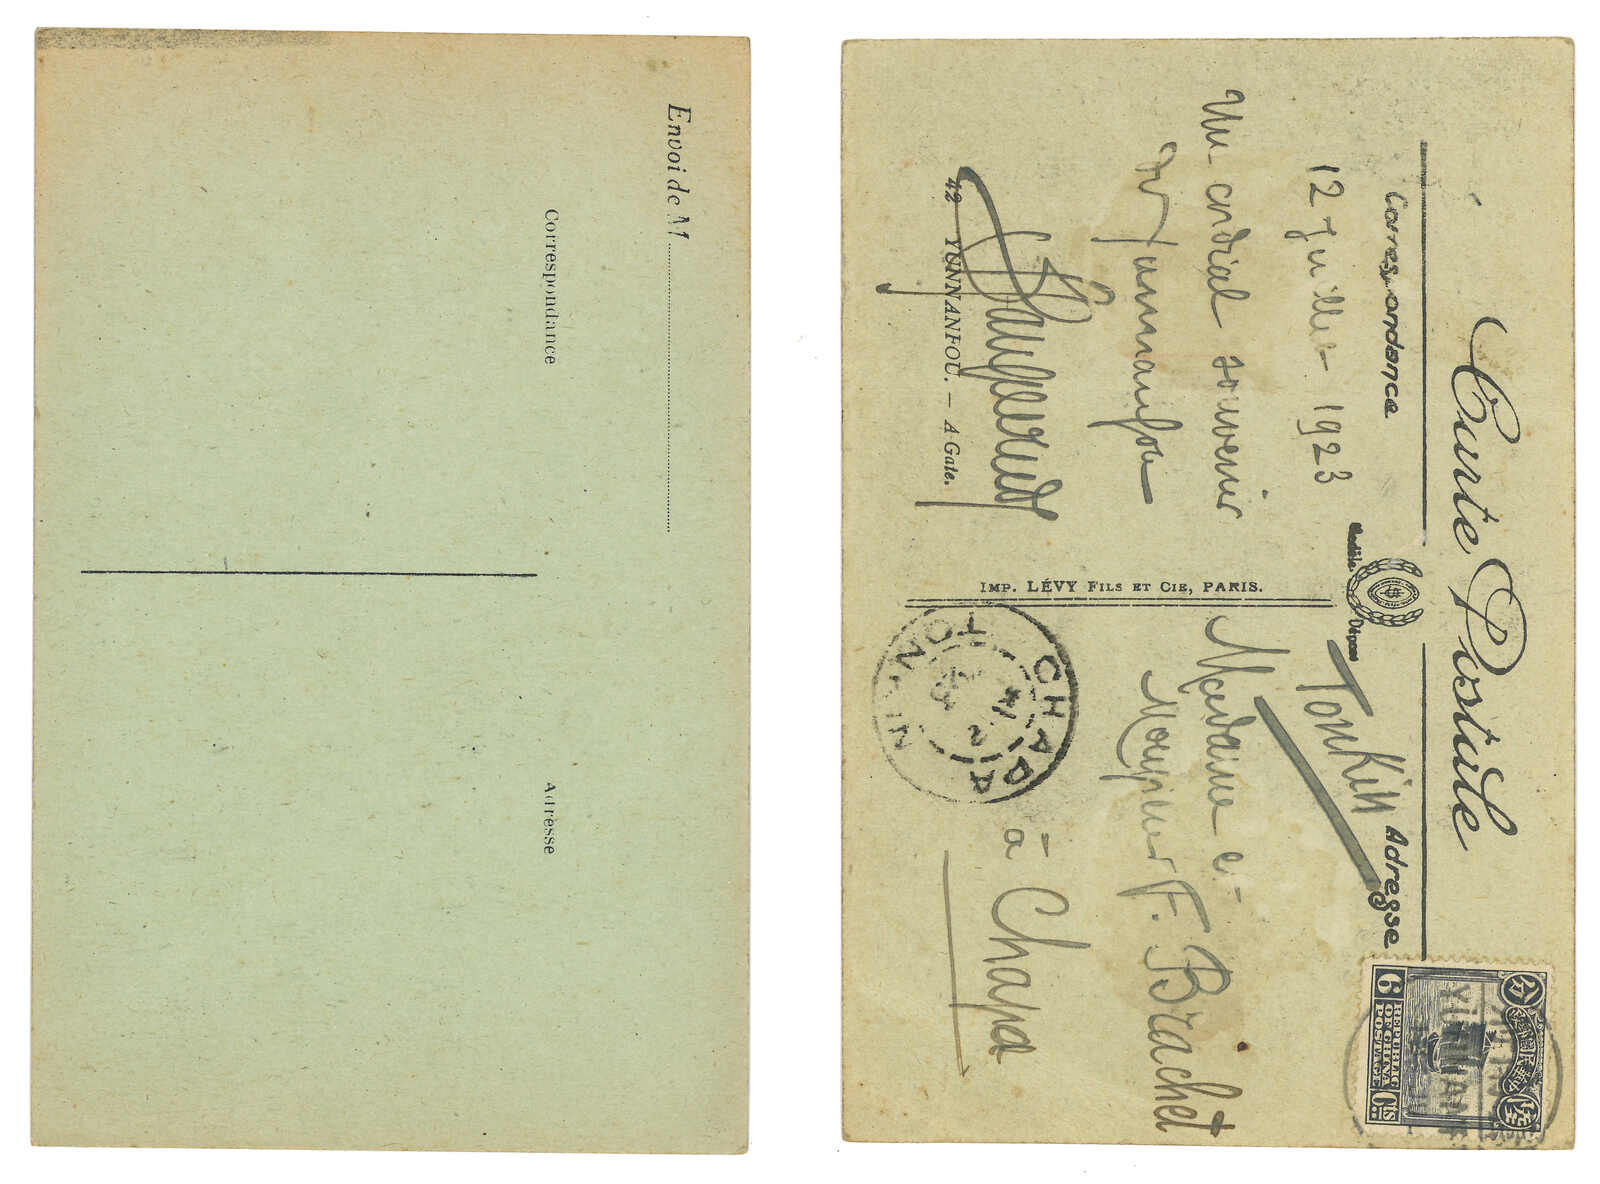 Envoi de M
Correspondance
Adresse
Carte Postale
Correspondance
Adresse
Modèle Déposé
12 Juillet 1923
Un cordial souvenir
de Yunnanfou
42 YUNNANFOU. — A Gate.
IMP. LÉVY FILS ET CIE, PARIS.
Tonkin
Madame et
F. Brachet
à Chapa
CHAPA
TONKIN
REPUBLIC
OF CHINA
POSTAGE
6
6 cts
分
中華民國郵政
YUNNAN